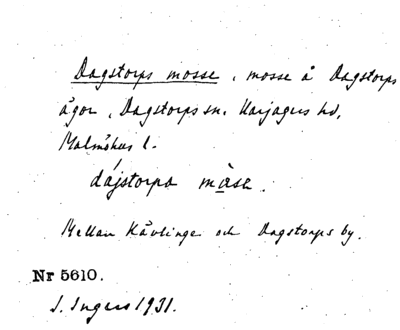 Dagstorps mosse, mosse å Dagstorps
ägor, Dagstorps sn. Harjagers hd,
Malmöhus l.
dájstorpa màsa.
Mellan Kävlinge och Dagstorps by.
Nr 5610.
I. Ingers 1931.